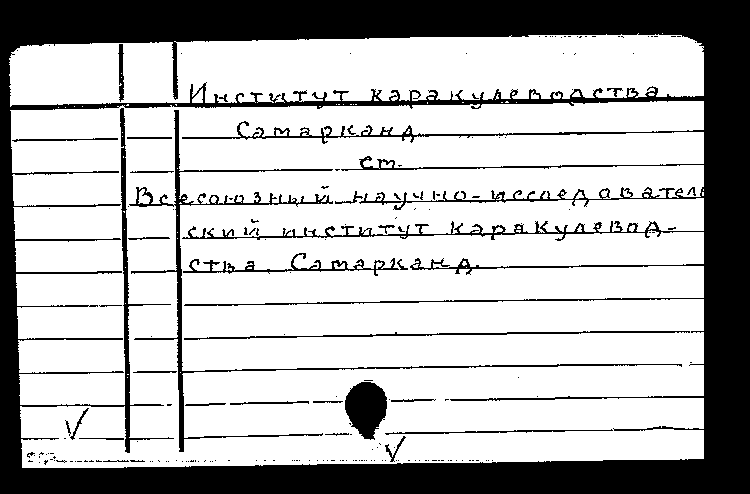 Институт каракулеводства.
Самарканд
ст.
Всесоюзный научно-исследователь
ский институт каракулевод-
ства. Самарканд.